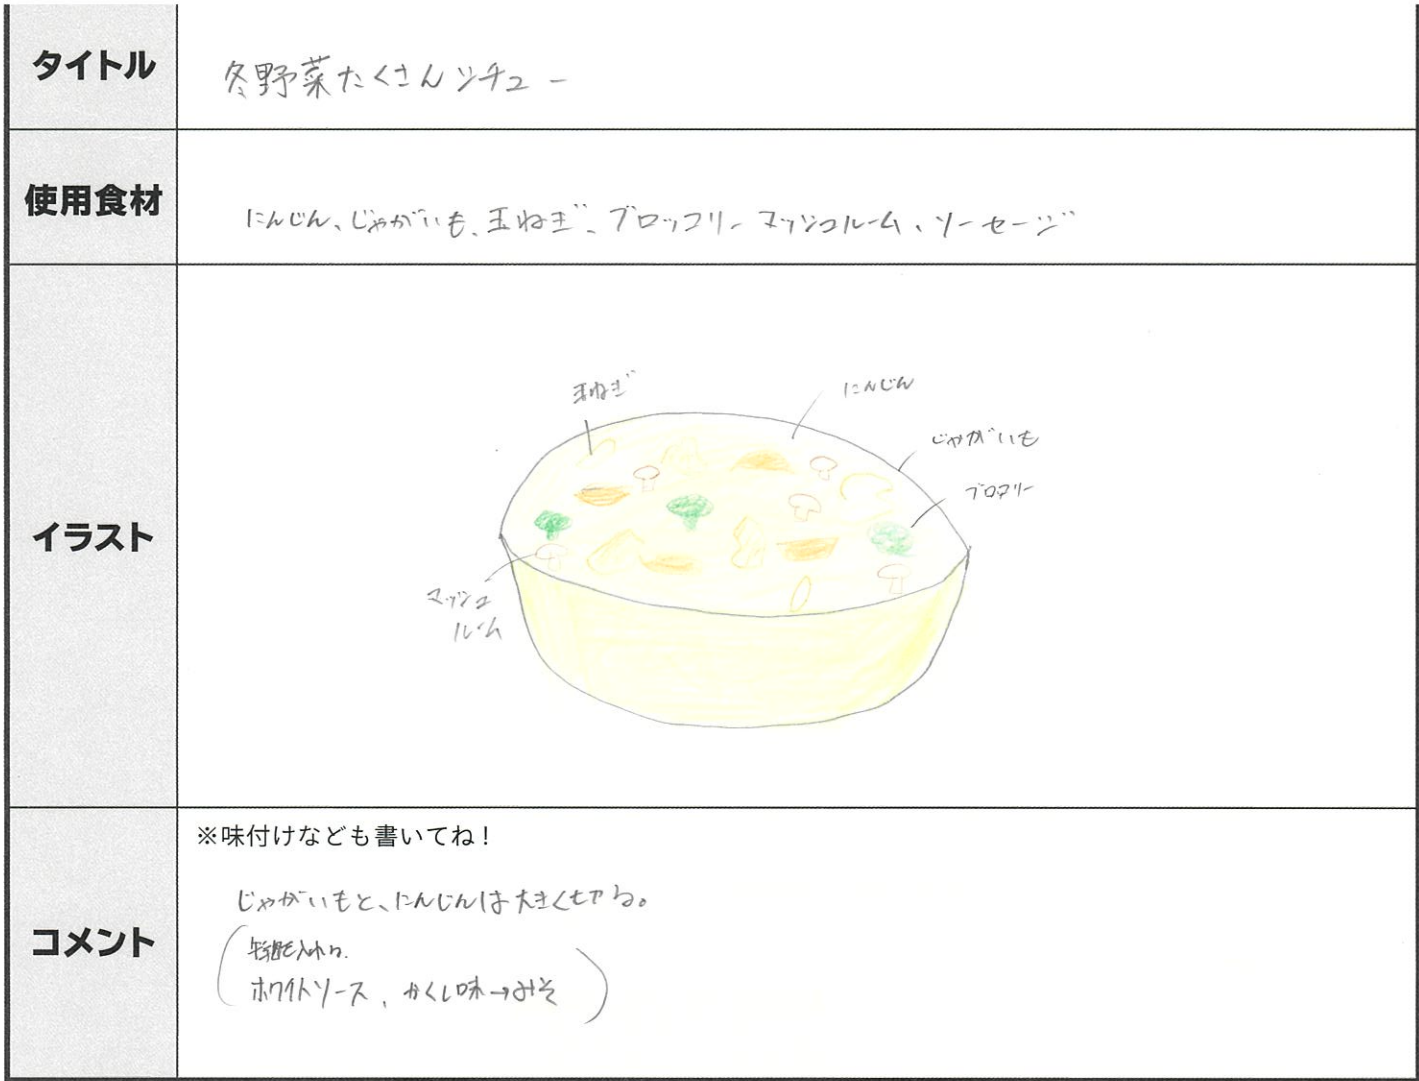 タイトル
冬野菜たくさんシチュー
使用食材
にんじん、じゃがいも、玉ねぎ、ブロッコリー マッシュルーム、ソーセージ
イラスト
玉ねぎ
にんじん
じゃがいも
ブロッコリー
マッシュ
ルーム
コメント
※味付けなども書いてね!
じゃがいもと、にんじんは大きく切る。
を入れる、
ホワイトソース、かくし味→みそ